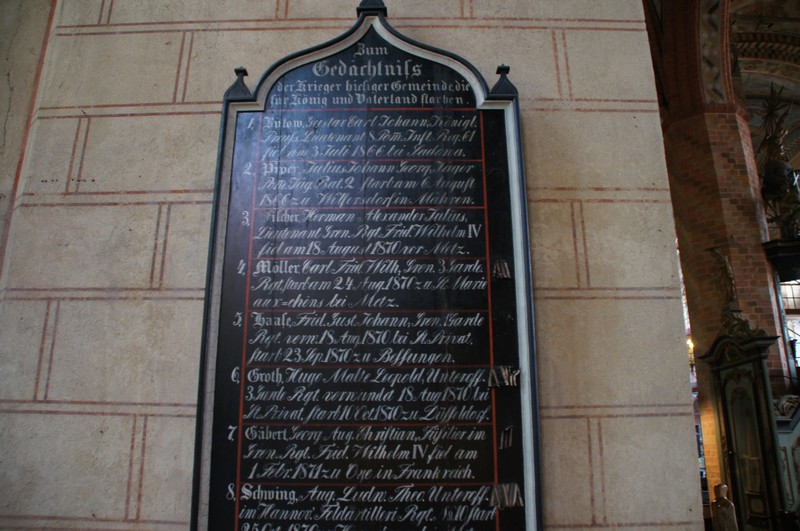 Zum
Gedächtniſs
der Krieger hieſiger Gemeinde, die
für König und Vaterland ſtarben.
1. Carl Johann, Königl.
Preuſs. Lieutenant 8 Pom. Inft. Rg. 61
fiel am 3 Juli 1866 bei Sadowa.
2. Piper, Julius Johann Georg, Jäger
Pom. Jäg. Bat. 2 ſtarb am 6 Auguſt
1866 zu in Mähren.
3. Filcher, Herman Alexander Julius,
Lieutenant Gren. Rgt. Frid. Wilhelm IV
fiel am 18 Auguſt 1870 vor Metz.
4. Möller, Carl Frid. Wilh, Gren. 3 Garde
Rgt. ſtarb am 24 Aug. 1870 zu St. Marie
aux=chêns bei Metz.
5. Haaſe, Frid. Juſt. Johann, Gren. Garde
Rgt. verw. 18 Aug. 1870 bei St. Privat,
ſtarb 23 Sep. 1870 zu Beſſungen.
6. Groth, Hugo Malte Leopold, Unteroff.
3 Garde Rgt. verwundd 18 Aug 1870 bei
St. Privat, ſtarb 10 Oct 1870 zu Düſſeldorf.
7. Gäbert, Georg Aug. Chriſtian, Füſilier im
Gren. Rgt. Frid. Wilhelm IV fiel am
1 Febr. 1871 zu Oye in Frankreich.
8. Schwing, Aug. Ludw. Theo. Unteroff.
im Hannov. Feldartilleri Rgt. No 10 ſtarb